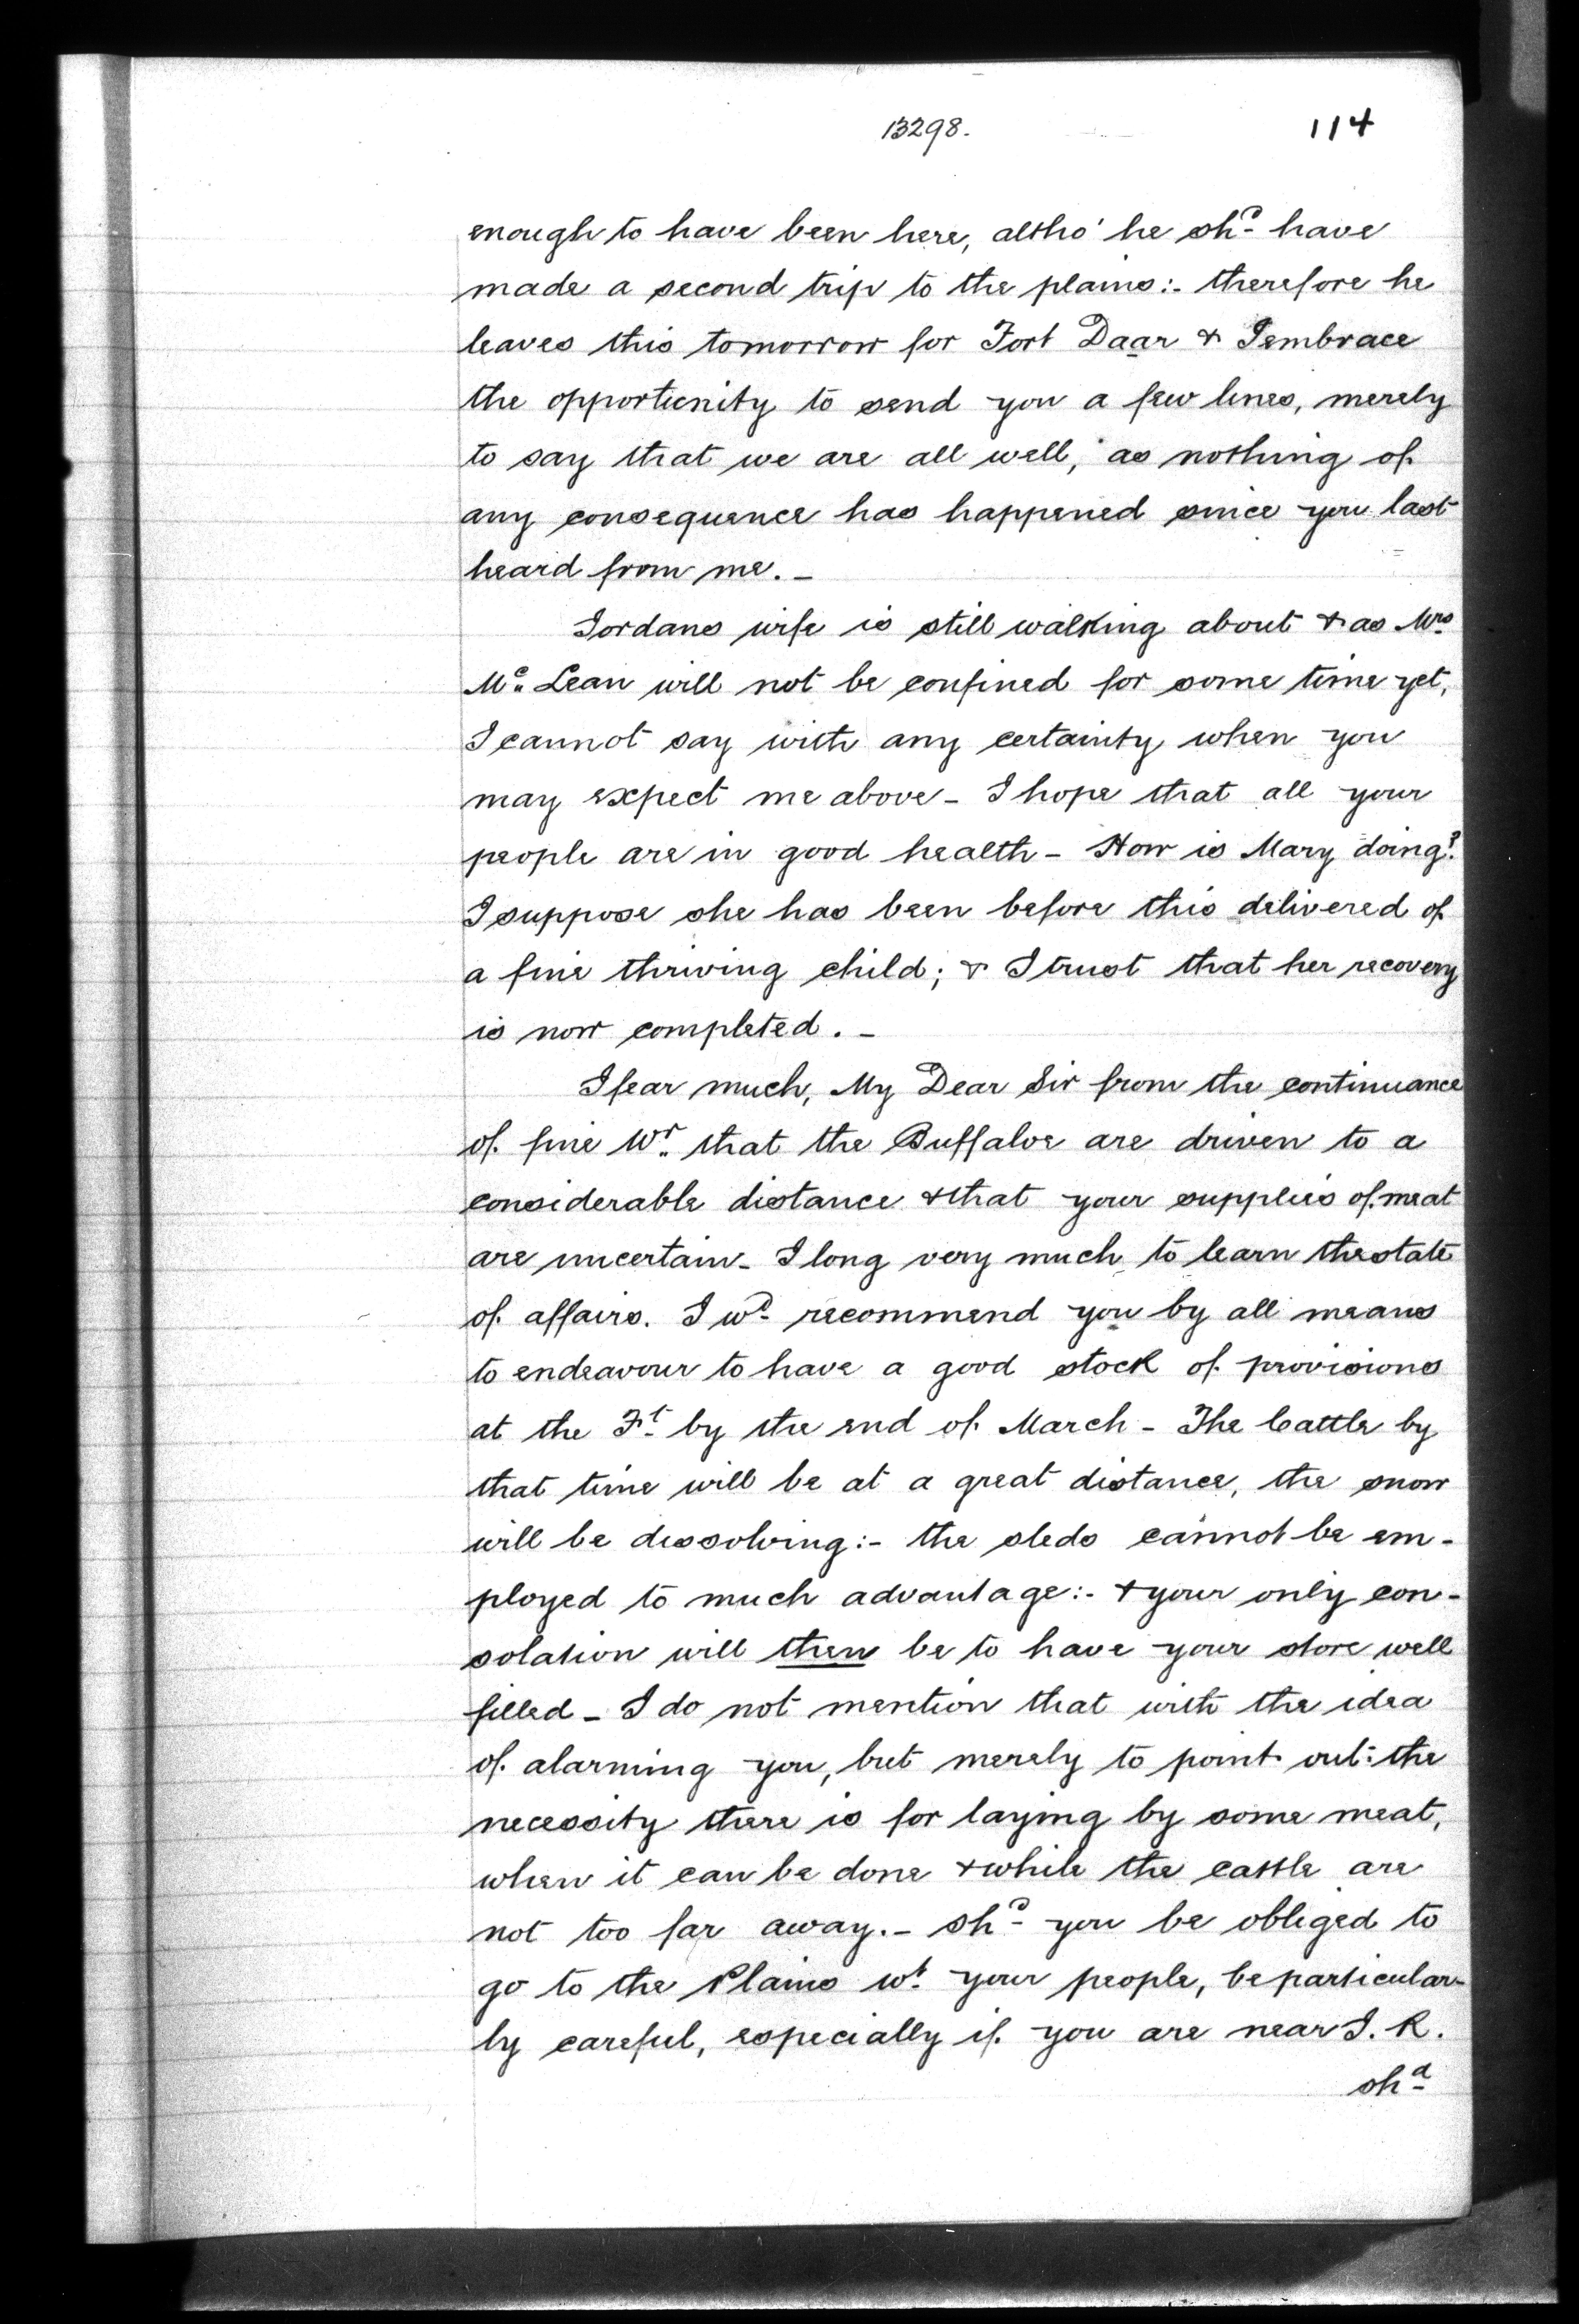 13298.
114
enough to have been here, altho' he shd have
made a second trip to the plains:- therefore he
leaves this tomorrow for Fort Daar & I embrace
the opportunity to send you a few lines, merely
to say that we are all well, as nothing of
any consequence has happened since you last
heard from me. -
Jordans wife is still walking about & as Mrs
Mc Lean will not be confined for some time yet,
I cannot say with any certainty when you
may expect me above - I hope that all your
people are in good health - How is Mary doing?
I suppose she has been before this delivered of
a fine thriving child; & I trust that her recovery
is now completed. -
I fear much, My Dear Sir from the continuance
of fine Wr that the Buffaloe are driven to a
considerable distance & that your supplies of meat
are uncertain - I long very much to learn the state
of affairs. I wd recommend you by all means
to endeavour to have a good stock of provisions
at the Ft by the end of March - The Cattle by
that time will be at a great distance, the snow
will be dissolving:- the sleds cannot be em-
ployed to much advantage:- & your only con-
solation will then be to have your store well
filled - I do not mention that with the idea
of alarming you, but merely to point out the
necessity there is for laying by some meat,
when it can be done & while the cattle are
not too far away. - Shd you be obliged to
go to the Plains wt your people, be particular-
ly careful, especially if you are near I. R.
shd